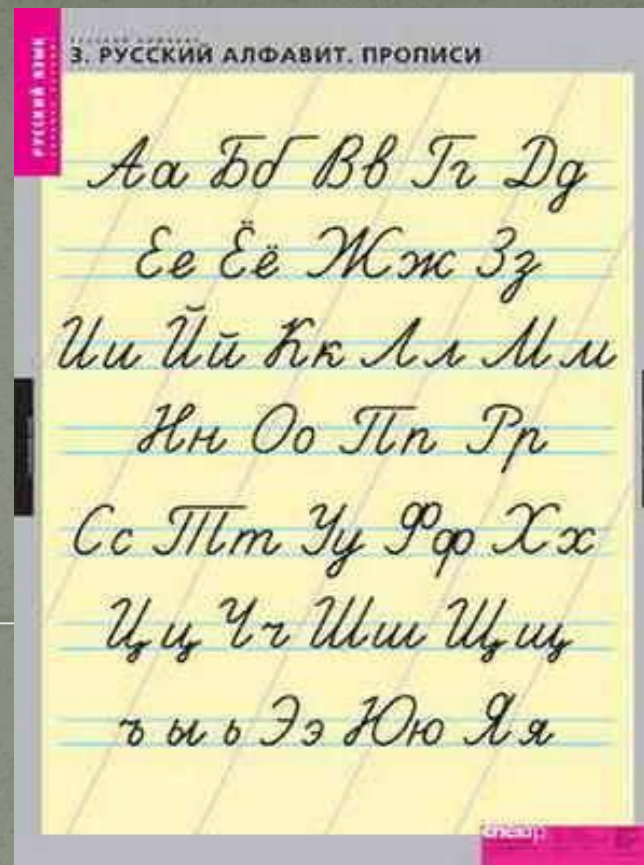 РУССКИЙ ЯЗЫК
3. РУССКИЙ АЛФАВИТ. ПРОПИСИ
Аа Бб Вв Гг Дд
Ее Ёё Жж Зз
Ии Йй Кк Лл Мм
Нн Оо Пп Рр
Сс Тт Уу Фф Хх
Цц Чч Шш Щщ
ъ ы ь Ээ Юю Яя